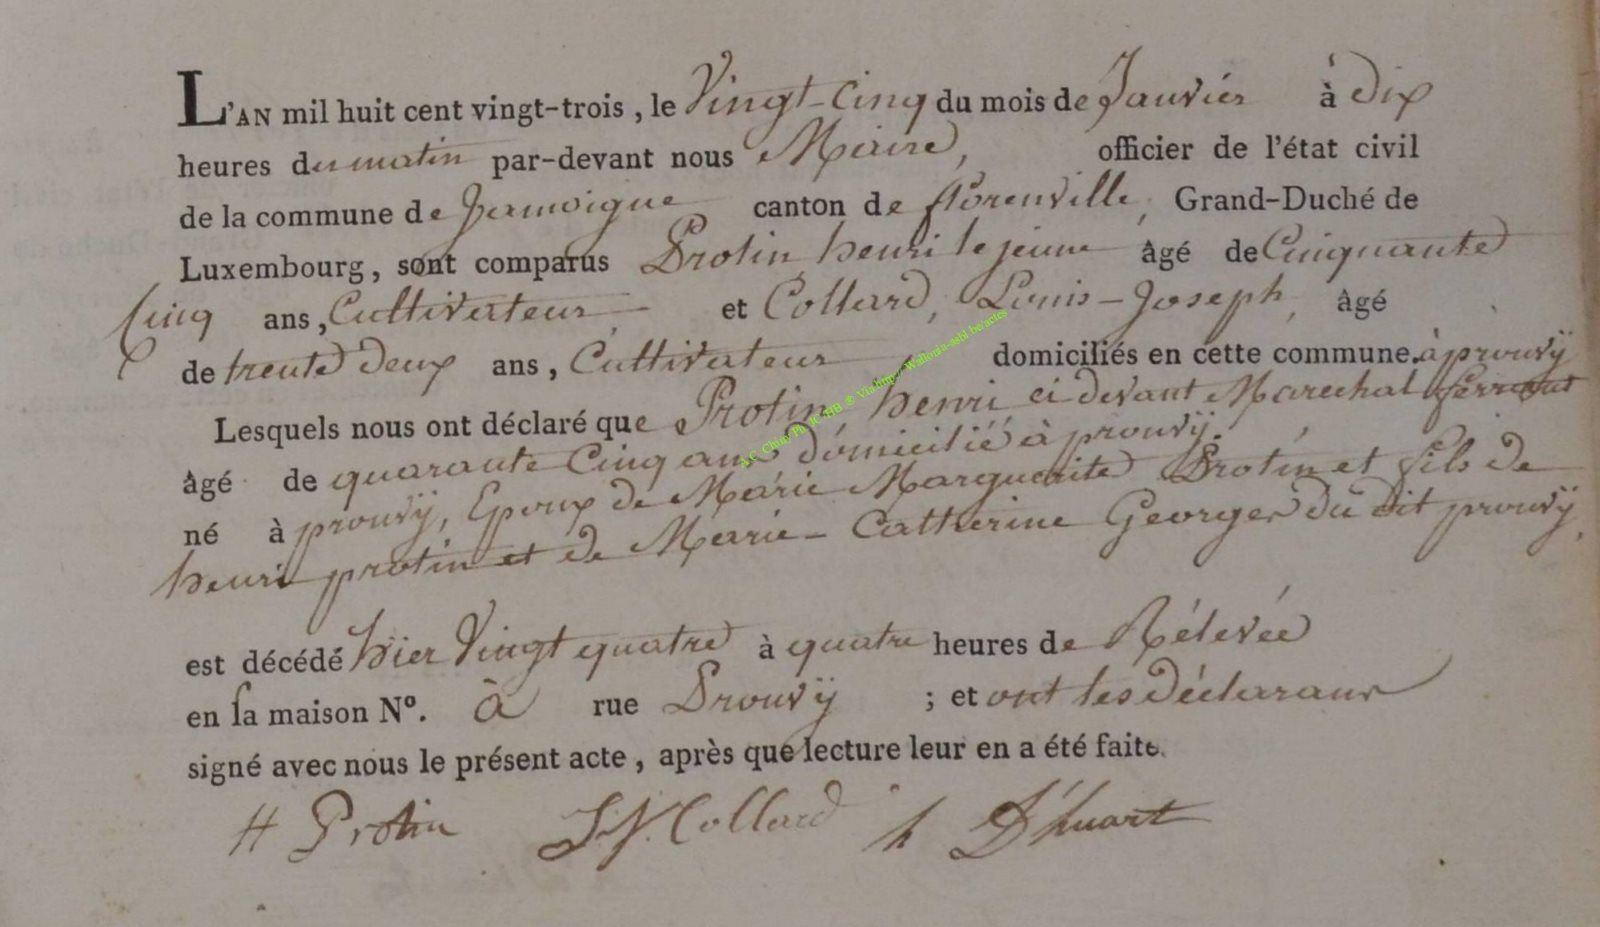 L'AN mil huit cent vingt-trois, le Vingt-Cinq du mois de Janvier à dix
heures du matin par-devant nous Maire, officier de l'état civil
de la commune de Jamoigne canton de florenville, Grand-Duché de
Luxembourg, sont comparus Protin henri le jeune âgé de Cinquante
Cinq ans, Cultivateur et Collard, Louis-Joseph, âgé
de trente deux ans, Cultivateur domiciliés en cette commune. à prouvÿ
Lesquels nous ont déclaré que Protin henri ci devant Marechal ferrant
âgé de quarante Cinq ans domicilié à prouvÿ.
né à prouvÿ, Epoux de Marie Marguerite Protin et fils de
henri protin et de Marie-Catherine Georges du dit prouvÿ,
est décédé hier Vingt quatre à quatre heures de Rélevée
en sa maison N°. à rue Prouvÿ ; et ont les déclarans
signé avec nous le présent acte, après que lecture leur en a été faite.
H Protin Collard h D'huart